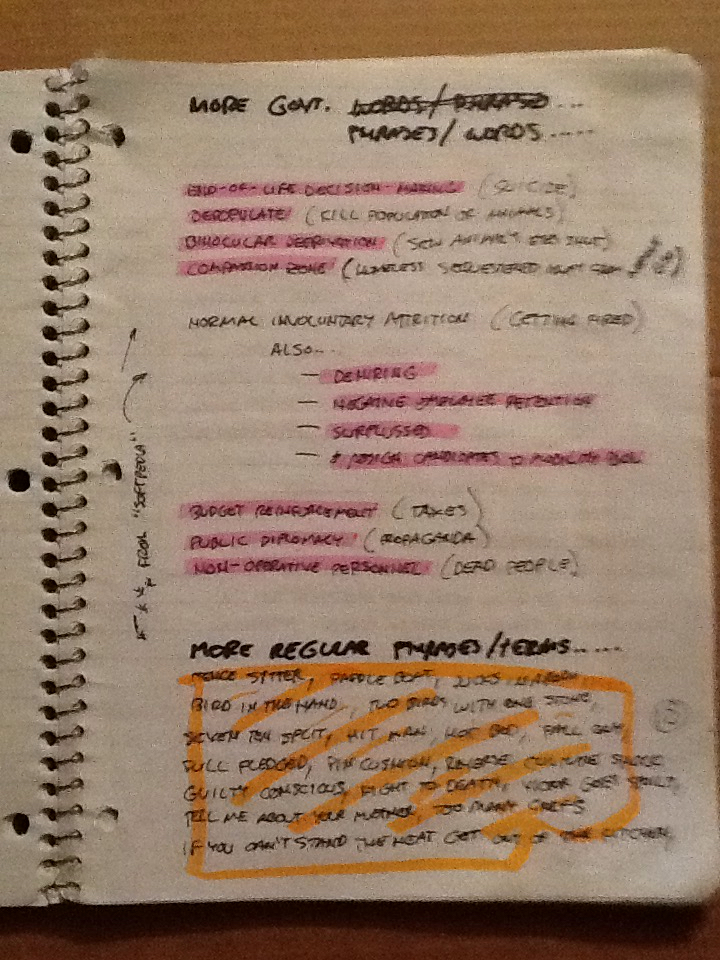 MORE GOVT. WORDS/PHRASES...
PHRASES/WORDS.....
END-OF-LIFE DECISION-MAKING (SUICIDE)
DEPOPULATE (KILL POPULATION OF ANIMALS)
BINOCULAR DEPRIVATION (SEW ANIMAL'S EYES SHUT)
COMPASSION ZONE (HOMELESS SEQUESTERED AWAY FROM
NORMAL INVOLUNTARY ATTRITION (GETTING FIRED)
ALSO...
— DEHIRING
— NEGATIVE EMPLOYEE RETENTION
— SURPLUSSED
— ASSIGN CANDIDATES TO MOBILITY POOL
BUDGET REINFORCEMENT (TAXES)
PUBLIC DIPLOMACY (PROPAGANDA)
NON-OPERATIVE PERSONNEL (DEAD PEOPLE)
FROM "SOFTPEDIA"
MORE REGULAR PHRASES/TERMS.....
FENCE SITTER, PADDLE BOAT,
BIRD IN THE HAND, TWO BIRDS WITH ONE STONE,
SEVEN TEN SPLIT, HIT MAN, HOT ROD, FALL GUY,
FULL FLEDGED, PIN CUSHION, REVERSE CULTURE SHOCK
GUILTY CONSCIOUS, RIGHT TO DEATH, VICTOR GOES SPOILS,
TELL ME ABOUT YOUR MOTHER, TOO MANY CHEFS
IF YOU CAN'T STAND THE HEAT GET OUT OF THE KITCHEN